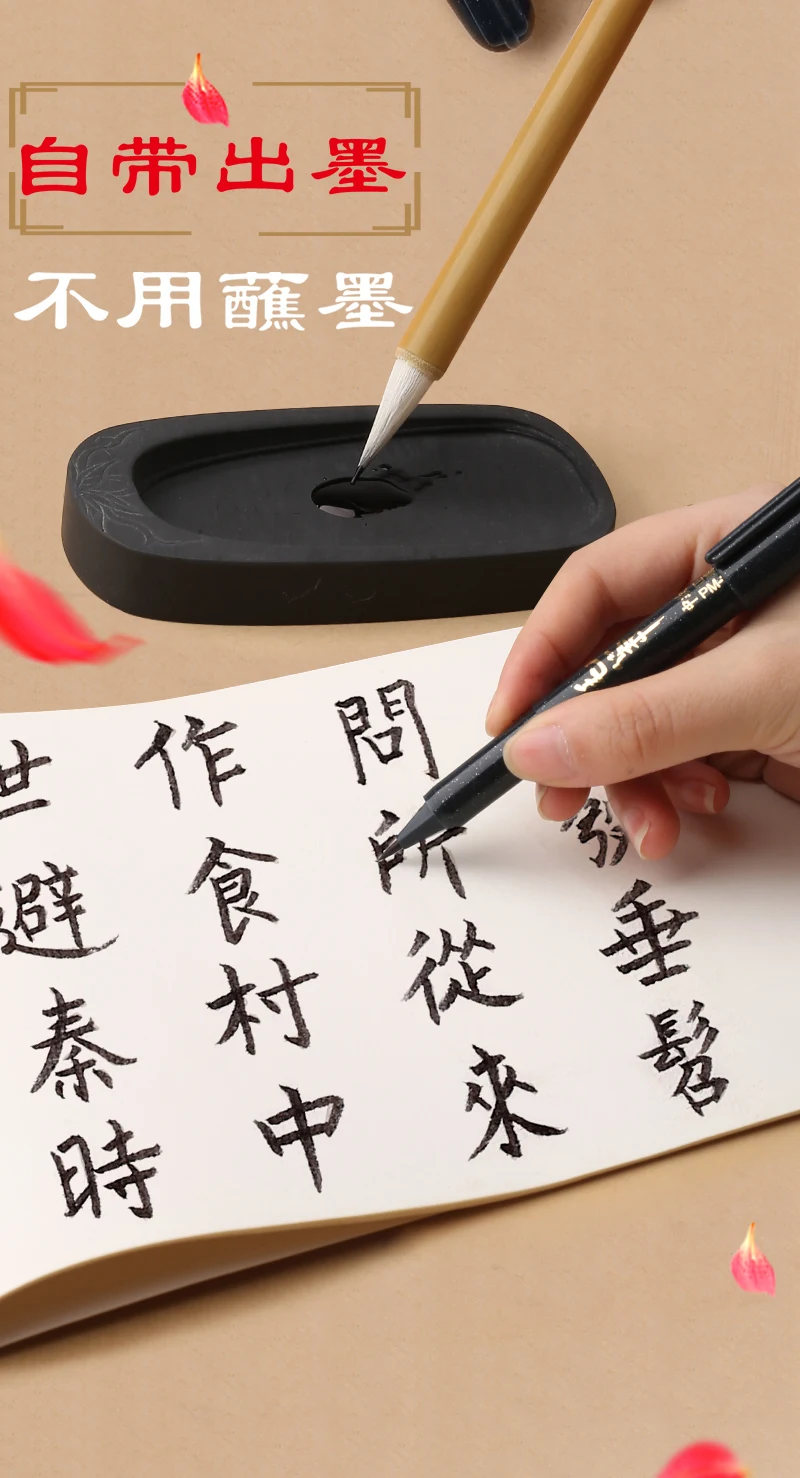 自带出墨
不用蘸墨
垂髫
問所從來
作食村中
世避秦時